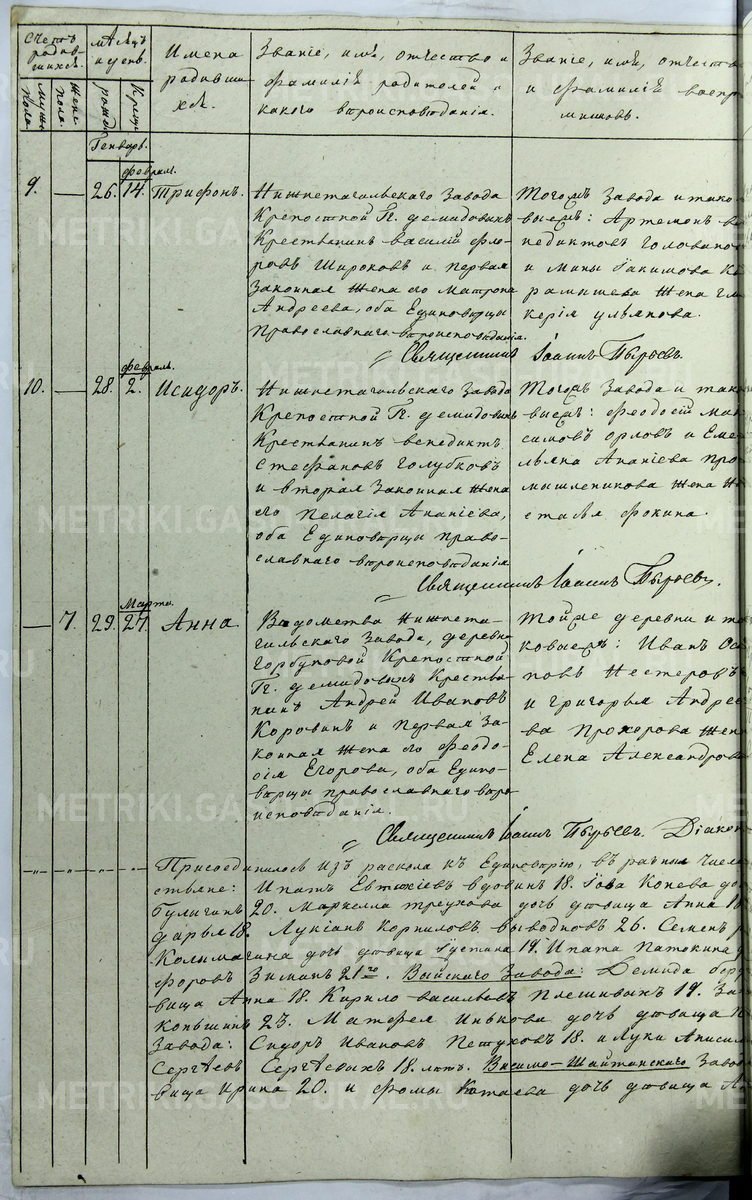 Счетъ родив-шихся.
Мужс. пола.
Женс. пола.
Мѣсяцъ и день.
рожд.
Крещ.
Имена родивши-хся.
Званіе, имя, отчество и фамилія родителей и какого вѣроисповѣданія.
Званіе, имя, отчество и фамилія воспрі-мниковъ.
Генваря.
февраля.
9. — 26. 14. Трифонъ.
Нижнетагильскаго Завода
Крепостной Гг. Демидовыхъ
Крестьянинъ Василій Фло-
ровъ Широковъ и первая
Законная жена его Матрона
Андреева, оба Единоверцы
Православнаго вѣроисповѣданія.
Тогожъ Завода и тако-
выежъ: Артемонъ Ве-
недиктовъ Головинъ
и Мины Іакимова
жена Гли-
керія Ульянова.
Священникъ Іоаннъ Пырьевъ.
февраля.
10. — 28. 2. Исидоръ.
Нижнетагильскаго Завода
Крепостной Гг. Демидовыхъ
Крестьянинъ Венедиктъ
Стефановъ Голубковъ
и вторая Законная жена
его Пелагія Ананіева,
оба Единоверцы Право-
славнаго вѣроисповѣданія
Тогожъ Завода и тако-
выежъ: Феодосій Мак-
симовъ Орловъ и Еме-
льяна Ананіева Про-
мышленикова жена
Фокина.
Священникъ Іоаннъ Пырьевъ.
Марта.
— 7. 29. 27. Анна.
Ведомства Нижнета-
гильскаго Завода, деревни
Горбуновой Крепостной
Гг. Демидовыхъ Крестья-
нинъ Андрей Ивановъ
Коровинъ и Первая За-
конная жена его Феодо-
сія Егорова, оба Едино-
верцы православнаго вѣро-
исповѣданія.
Тойже деревни и та-
ковыежъ: Иванъ Оси-
повъ Нестеровъ
и Григорья Андрее-
ва Прохорова жена
Елена Александрова
Священникъ Іоаннъ Пырьевъ. Діаконъ
Присоединилось изъ раскола къ Единоверію, въ разныя числа
стьяне: Ипатъ Евтихіевъ Вдовинъ 18. Іова Конева до
Булыгинъ 20. Маркелла Треухова дочь девица Анна 18
Дарья 18. Лукіанъ Корниловъ Выводковъ 26. Семенъ
Колимагина дочь девица Іустина 19. Ипата Патокина
форовъ Зиминъ 21го. Выйскаго Завода: Демида
вица Анна 18. Кирило Васильевъ Плешивыхъ 19. За
копьшинъ 23. Матфея Инькова дочь девица
Завода: Сидоръ Ивановъ Петуховъ 18. и Луки Анисим
Сергѣевъ Сергѣевыхъ 18. летъ. Висимо-Шайтанскаго Заво
вица Ирина 20. и Фомы Катаева дочь девица
METRIKI.GASO-URAL.RU